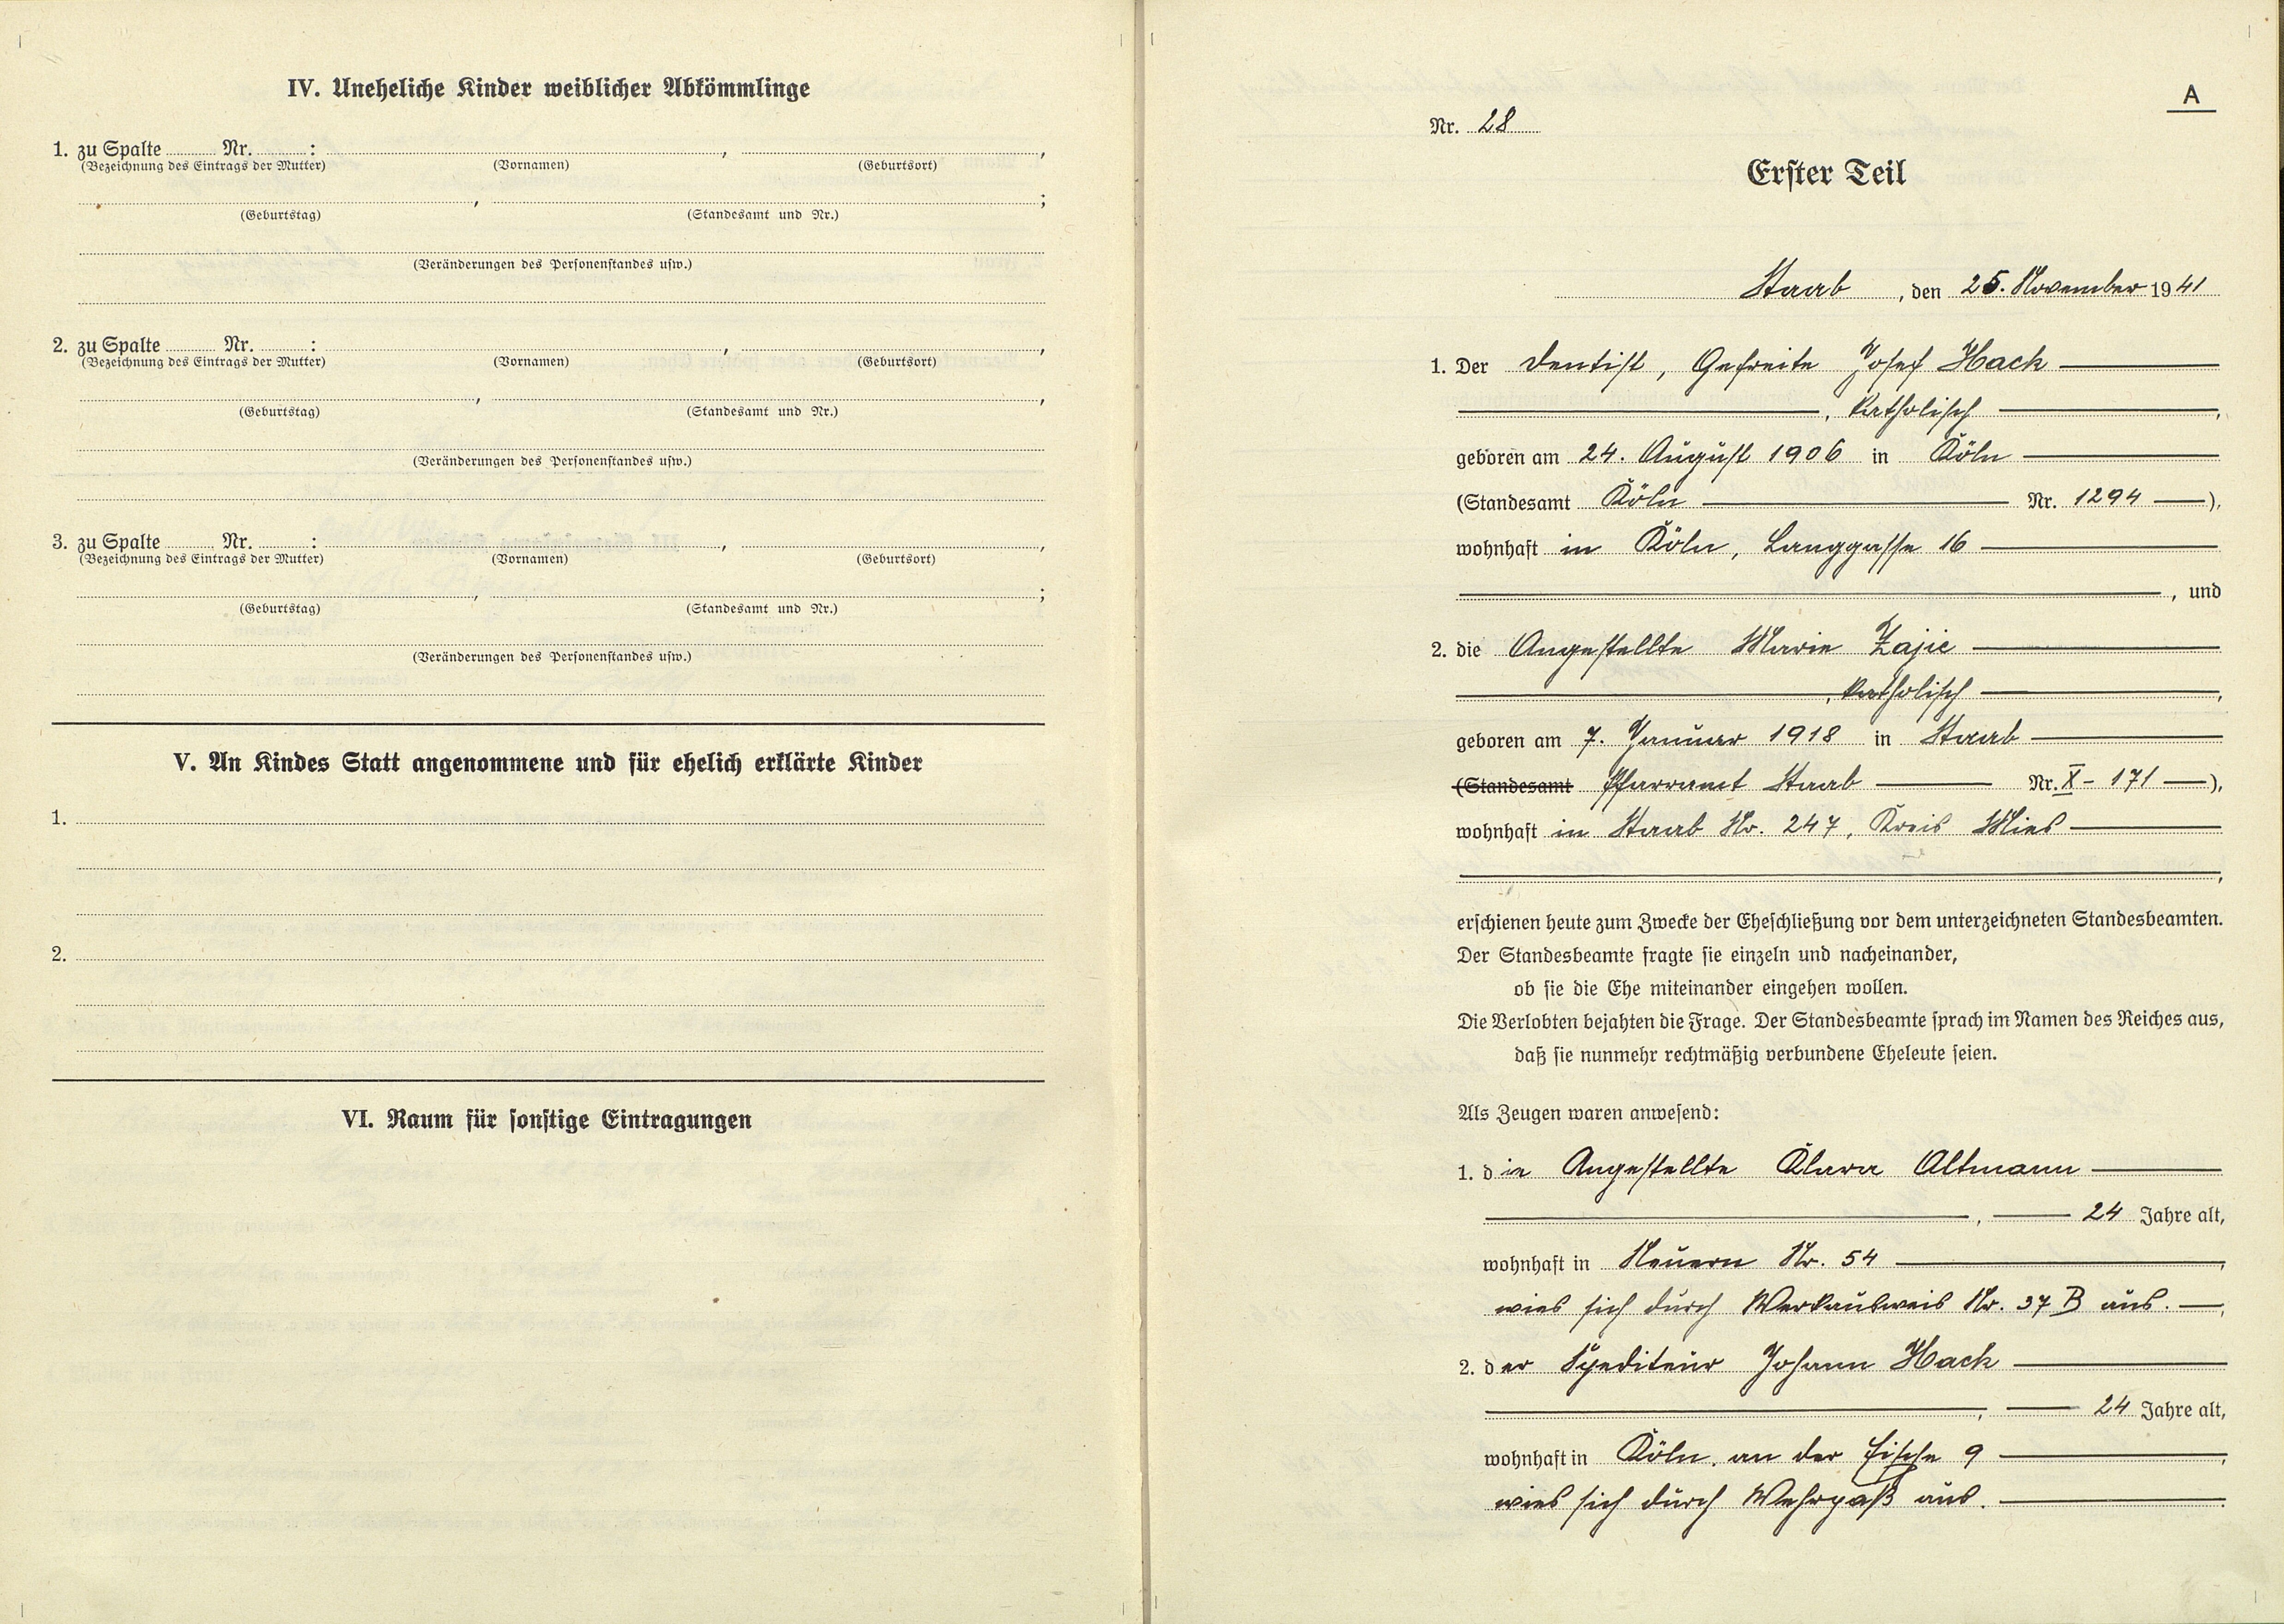 IV. Uneheliche Kinder weiblicher Abkömmlinge
1. zu Spalte Nr. : , ,
(Bezeichnung des Eintrags der Mutter) (Vornamen) (Geburtsort)
, ;
(Geburtstag) (Standesamt und Nr.)
(Veränderungen des Personenstandes usw.)
2. zu Spalte Nr. : , ,
(Bezeichnung des Eintrags der Mutter) (Vornamen) (Geburtsort)
, ,
(Geburtstag) (Standesamt und Nr.)
(Veränderungen des Personenstandes usw.)
3. zu Spalte Nr. : , ,
(Bezeichnung des Eintrags der Mutter) (Vornamen) (Geburtsort)
, ;
(Geburtstag) (Standesamt und Nr.)
(Veränderungen des Personenstandes usw.)
V. An Kindes Statt angenommene und für ehelich erklärte Kinder
1.
2.
VI. Raum für sonstige Eintragungen
A
Nr. 28
Erster Teil
Staab, den 25. November 1941
1. Der Dentist, Gefreite Josef Hack
, katholisch,
geboren am 24. August 1906 in Köln
(Standesamt Köln Nr. 1294),
wohnhaft in Köln, Langgasse 16
, und
2. die Angestellte Marie Zajic
, katholisch,
geboren am 7. Januar 1918 in Staab
(Standesamt Pfarramt Staab Nr. X - 171),
wohnhaft in Staab Nr. 247, Kreis Mies
,
erschienen heute zum Zwecke der Eheschließung vor dem unterzeichneten Standesbeamten.
Der Standesbeamte fragte sie einzeln und nacheinander,
ob sie die Ehe miteinander eingehen wollen.
Die Verlobten bejahten die Frage. Der Standesbeamte sprach im Namen des Reiches aus,
daß sie nunmehr rechtmäßig verbundene Eheleute seien.
Als Zeugen waren anwesend:
1. die Angestellte Klara Altmann
, 24 Jahre alt,
wohnhaft in Neuern Nr. 54,
wies sich durch Werkausweis Nr. 37 B aus.,
2. der Spediteur Johann Hack
, 24 Jahre alt,
wohnhaft in Köln, an der 9,
wies sich durch Wehrpaß aus.